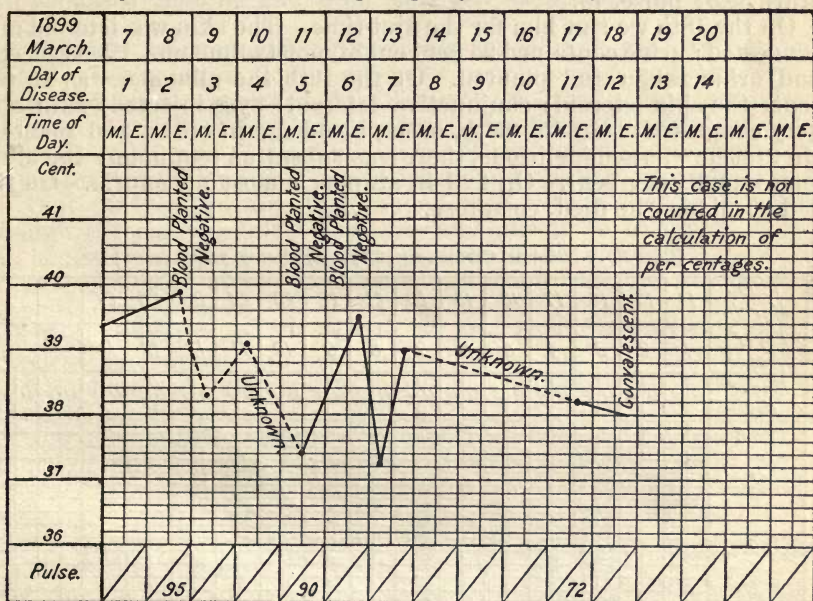 1899
March. 7 8 9 10 11 12 13 14 15 16 17 18 19 20
Day of
Disease. 1 2 3 4 5 6 7 8 9 10 11 12 13 14
Time of
Day. M. E. M. E. M. E. M. E. M. E. M. E. M. E. M. E. M. E. M. E. M. E. M. E. M. E. M. E. M. E. M. E.
Cent.
41
40
39
38
37
36
Blood Planted
Negative.
Unknown
Blood Planted
Negative.
Blood Planted
Negative.
Unknown.
Convalescent.
This case is not
counted in the
calculation of
per centages.
Pulse. 95 90 72